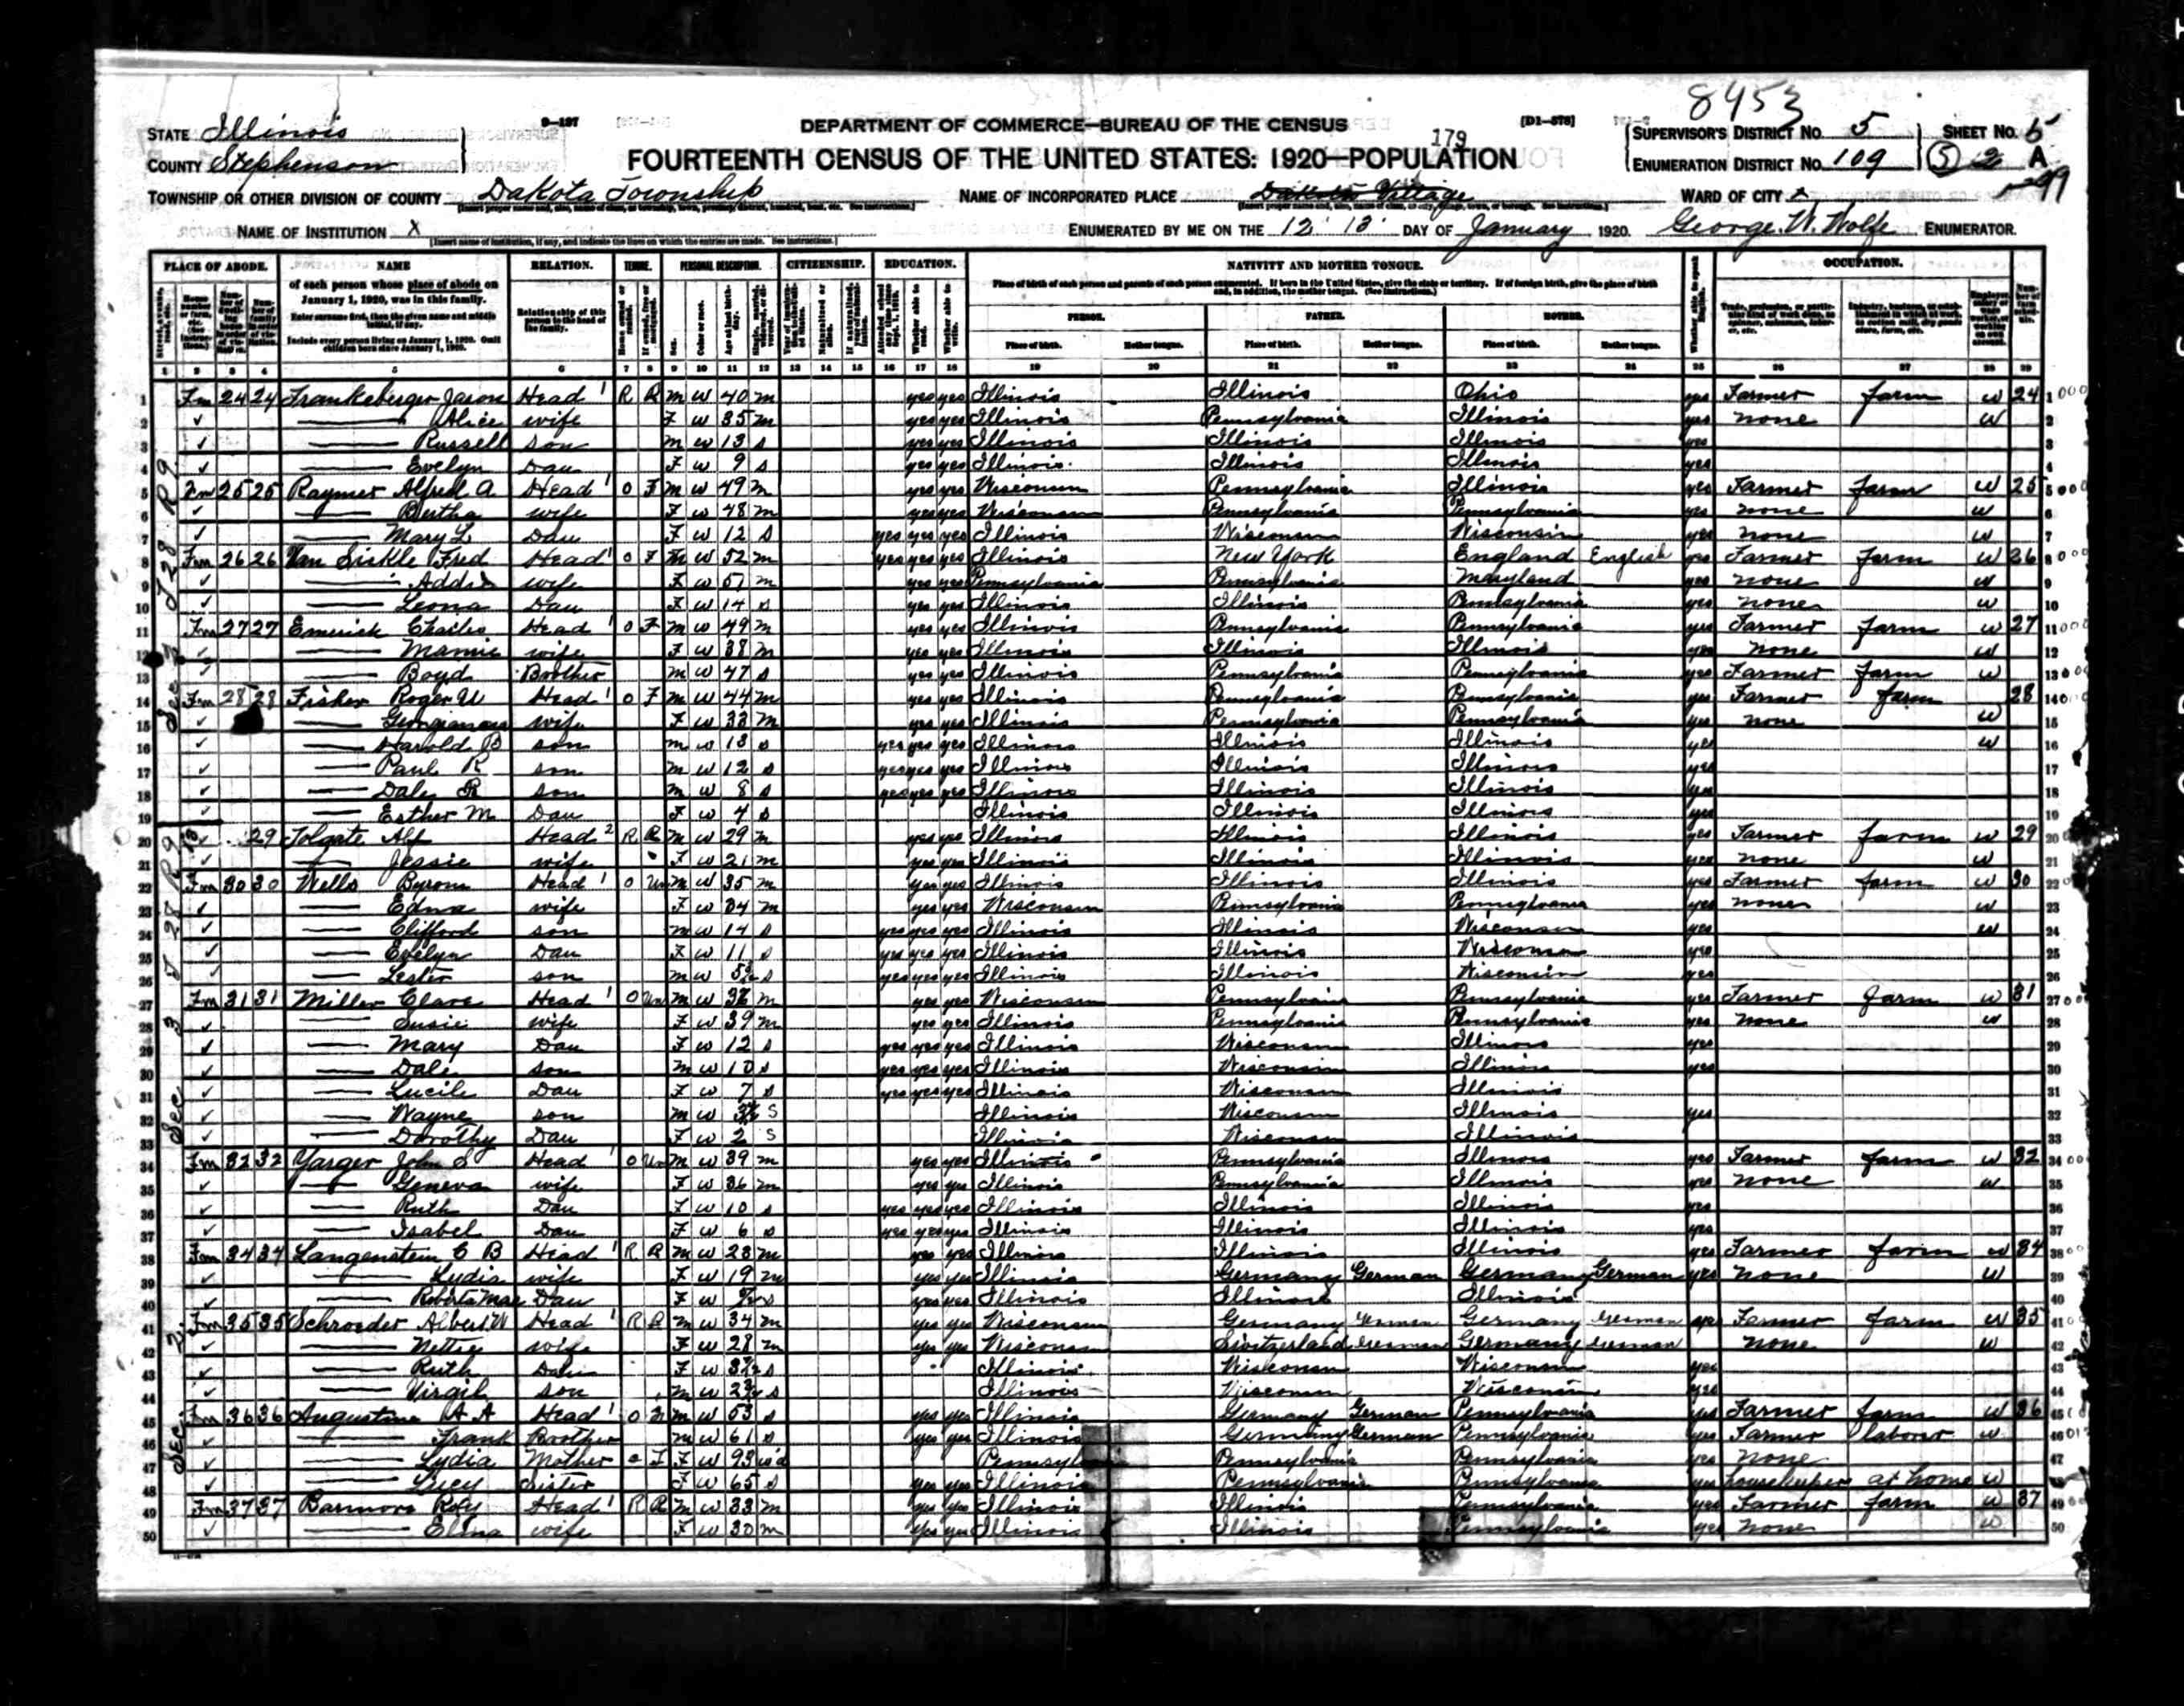 8453
STATE Illinois
COUNTY Stephenson
9-137
DEPARTMENT OF COMMERCE—BUREAU OF THE CENSUS
[D1-578]
179
FOURTEENTH CENSUS OF THE UNITED STATES: 1920—POPULATION
SUPERVISOR'S DISTRICT No. 5
ENUMERATION DISTRICT No. 109
SHEET No. 5
A
TOWNSHIP OR OTHER DIVISION OF COUNTY Dakota Township
NAME OF INCORPORATED PLACE Dakota Village
WARD OF CITY x
NAME OF INSTITUTION X
ENUMERATED BY ME ON THE 12 13 DAY OF January, 1920. George W. Wolfe ENUMERATOR.
PLACE OF ABODE. NAME RELATION. TENURE. PERSONAL DESCRIPTION. CITIZENSHIP. EDUCATION. NATIVITY AND MOTHER TONGUE. OCCUPATION.
of each person whose place of abode on January 1, 1920, was in this family.
Enter surname first, then the given name and middle initial, if any.
Include every person living on January 1, 1920. Omit children born since January 1, 1920.
Relationship of this person to the head of the family.
Place of birth of each person and parents of each person enumerated. If born in the United States, give the state or territory. If of foreign birth, give the place of birth and, in addition, the mother tongue. (See instructions.)
PERSON. FATHER. MOTHER.
Place of birth. Mother tongue. Place of birth. Mother tongue. Place of birth. Mother tongue.
1 2 3 4 5 6 7 8 9 10 11 12 13 14 15 16 17 18 19 20 21 22 23 24 25 26 27 28 29
1 Fm 24 24 Frankeberger Jason Head 1 R R M W 40 M yes yes Illinois Illinois Ohio yes Farmer farm W 24
2 Alice wife F W 35 M yes yes Illinois Pennsylvania Illinois yes none W
3 Russell son M W 13 S yes yes Illinois Illinois Illinois yes
4 Evelyn Dau F W 9 S yes yes Illinois Illinois Illinois yes
5 Fm 25 25 Raymer Alfred A Head 1 O F M W 49 M yes yes Wisconsin Pennsylvania Illinois yes Farmer farm W 25
6 Bertha wife F W 48 M yes yes Wisconsin Pennsylvania Pennsylvania yes none W
7 Mary L Dau F W 12 S yes yes yes Illinois Wisconsin Wisconsin yes none W
8 Fm 26 26 Van Sickle Fred Head 1 O F M W 52 M yes yes yes Illinois New York England English yes Farmer farm W 26
9 Addie wife F W 51 M yes yes Pennsylvania Pennsylvania Maryland yes none W
10 Leona Dau F W 14 S yes yes Illinois Illinois Pennsylvania yes none W
11 Fm 27 27 Emerick Charles Head 1 O F M W 49 M yes yes Illinois Pennsylvania Pennsylvania yes Farmer farm W 27
12 Mamie wife F W 38 M yes yes Illinois Illinois Illinois yes none W
13 Boyd Brother M W 47 S yes yes Illinois Pennsylvania Pennsylvania yes Farmer farm W
14 Fm 28 28 Fisher Roger W Head 1 O F M W 44 M yes yes Illinois Pennsylvania Pennsylvania yes Farmer farm 28
15 wife F W 33 M yes yes Illinois Pennsylvania Pennsylvania yes none W
16 Harold B son M W 13 S yes yes yes Illinois Illinois Illinois yes W
17 Paul R son M W 12 S yes yes yes Illinois Illinois Illinois yes
18 Dale R son M W 8 S yes yes yes Illinois Illinois Illinois yes
19 Esther M Dau F W 4 S Illinois Illinois Illinois yes
20 29 Folgate Alf Head 2 R R M W 29 M yes yes Illinois Illinois Illinois yes Farmer farm W 29
21 Jessie wife F W 21 M yes yes Illinois Illinois Illinois yes none W
22 Fm 30 30 Wells Byron Head 1 O Un M W 35 M yes yes Illinois Illinois Illinois yes Farmer farm W 30
23 Edna wife F W 34 M yes yes Wisconsin Pennsylvania Pennsylvania yes none W
24 Clifford son M W 14 S yes yes yes Illinois Illinois Wisconsin yes W
25 Evelyn Dau F W 11 S yes yes yes Illinois Illinois Wisconsin yes
26 Lester son M W S yes yes yes Illinois Illinois Wisconsin yes
27 Fm 31 31 Miller Clare Head 1 O Un M W M yes yes Wisconsin Pennsylvania Pennsylvania yes Farmer farm W 31
28 Susie wife F W 39 M yes yes Illinois Pennsylvania Pennsylvania yes none W
29 Mary Dau F W 12 S yes yes yes Illinois Wisconsin Illinois yes
30 Dale son M W 10 S yes yes yes Illinois Wisconsin Illinois yes
31 Lucile Dau F W 7 S yes yes yes Illinois Wisconsin Illinois
32 Wayne son M W S Illinois Wisconsin Illinois yes
33 Dorothy Dau F W 2 S Illinois Wisconsin Illinois
34 Fm 32 32 Yarger John S Head 1 O Un M W 39 M yes yes Illinois Pennsylvania Illinois yes Farmer farm W 32
35 Geneva wife F W 36 M yes yes Illinois Pennsylvania Illinois yes none W
36 Ruth Dau F W 10 S yes yes yes Illinois Illinois Illinois yes
37 Isabel Dau F W 6 S yes yes yes Illinois Illinois Illinois yes
38 Fm 34 34 Langenstein C B Head 1 R R M W 28 M yes yes Illinois Illinois Illinois yes Farmer farm W 34
39 Lydia wife F W 19 M yes yes Illinois Germany German Germany German yes none W
40 Roberta Mae Dau F W S yes yes Illinois Illinois Illinois
41 Fm 35 35 Schroeder Albert W Head 1 R R M W 34 M yes yes Wisconsin Germany German Germany German yes Farmer farm W 35
42 Nettie wife F W 28 M yes yes Wisconsin Switzerland German Germany German none W
43 Ruth Dau F W S Illinois Wisconsin Wisconsin yes
44 Virgil son M W S Illinois Wisconsin Wisconsin yes
45 Fm 36 36 Augustine A A Head 1 O M W 53 S yes yes Illinois Germany German Pennsylvania yes Farmer farm W 36
46 Frank Brother M W 61 S yes yes Illinois Germany German Pennsylvania yes Farmer laborer W
47 Lydia Mother F W 93 wd Pennsylvania Pennsylvania yes none
48 Lucy Sister F W 65 S yes yes Illinois Pennsylvania Pennsylvania yes housekeeper at home W
49 Fm 37 37 Barmore Roy Head 1 R R M W 33 M yes yes Illinois Illinois Pennsylvania yes Farmer farm W 37
50 wife F W 30 M yes yes Illinois Illinois Pennsylvania yes none W